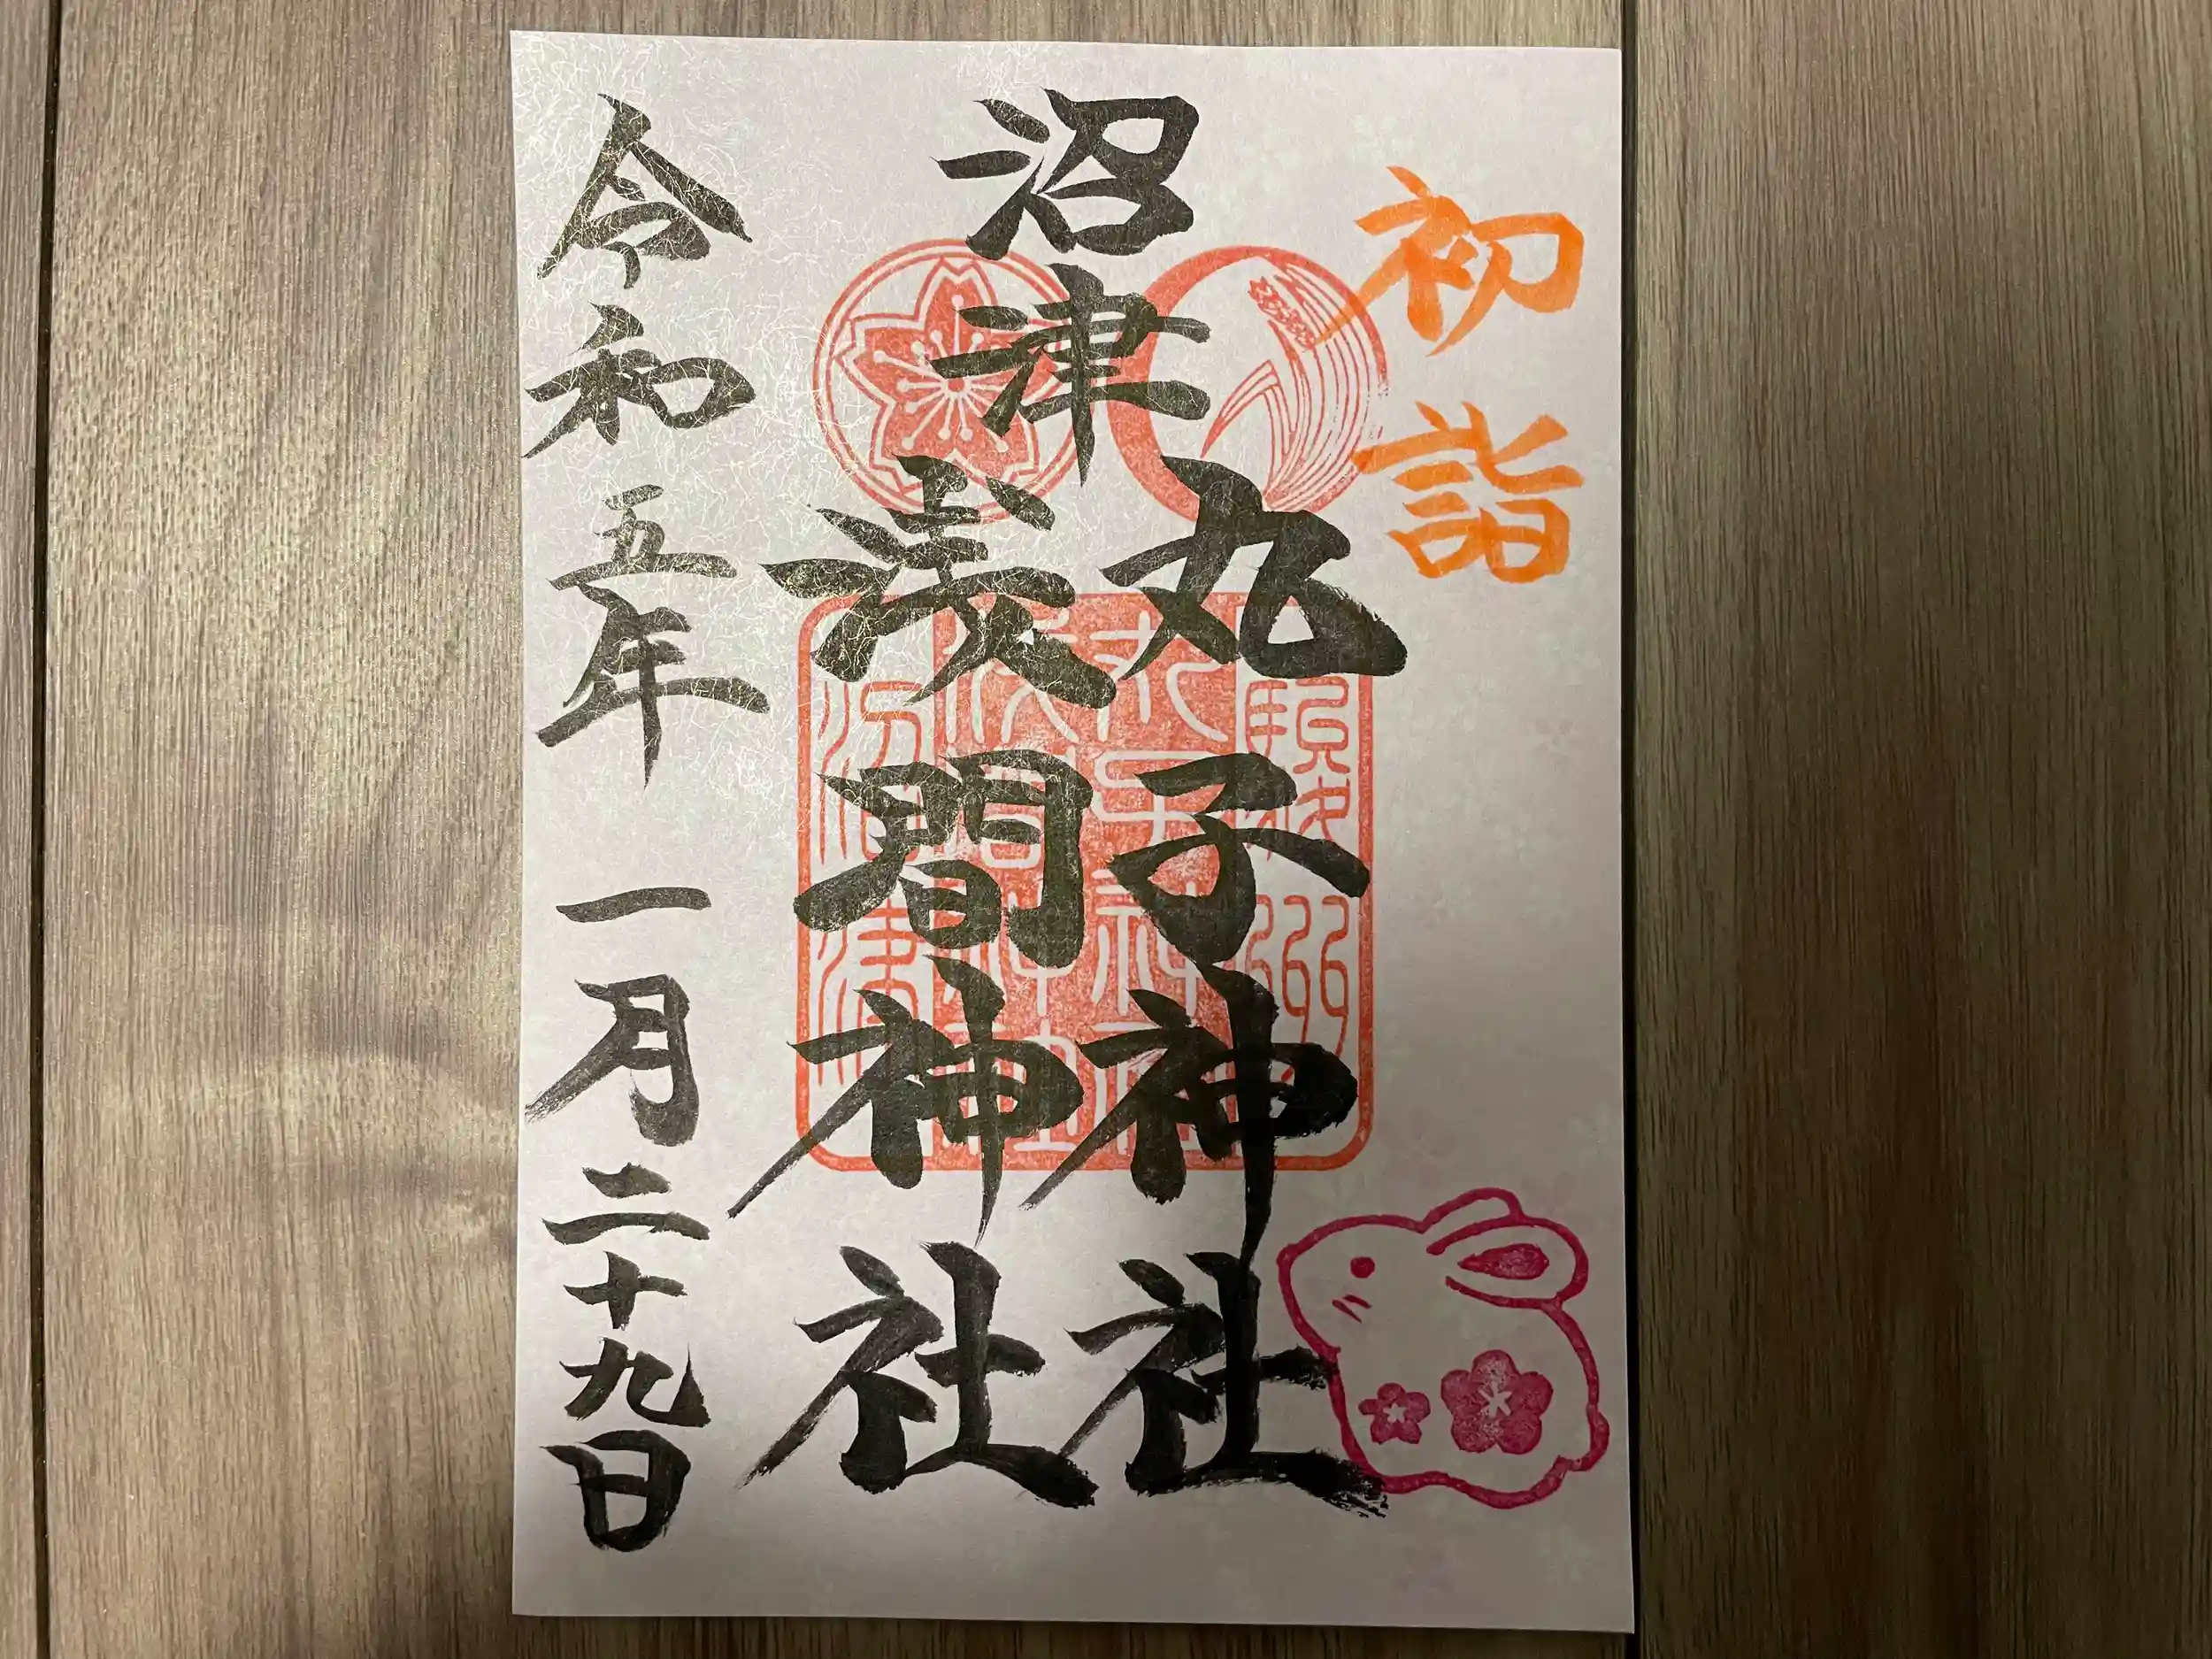 初詣
沼津
丸子神社
浅間神社
令和五年一月二十九日